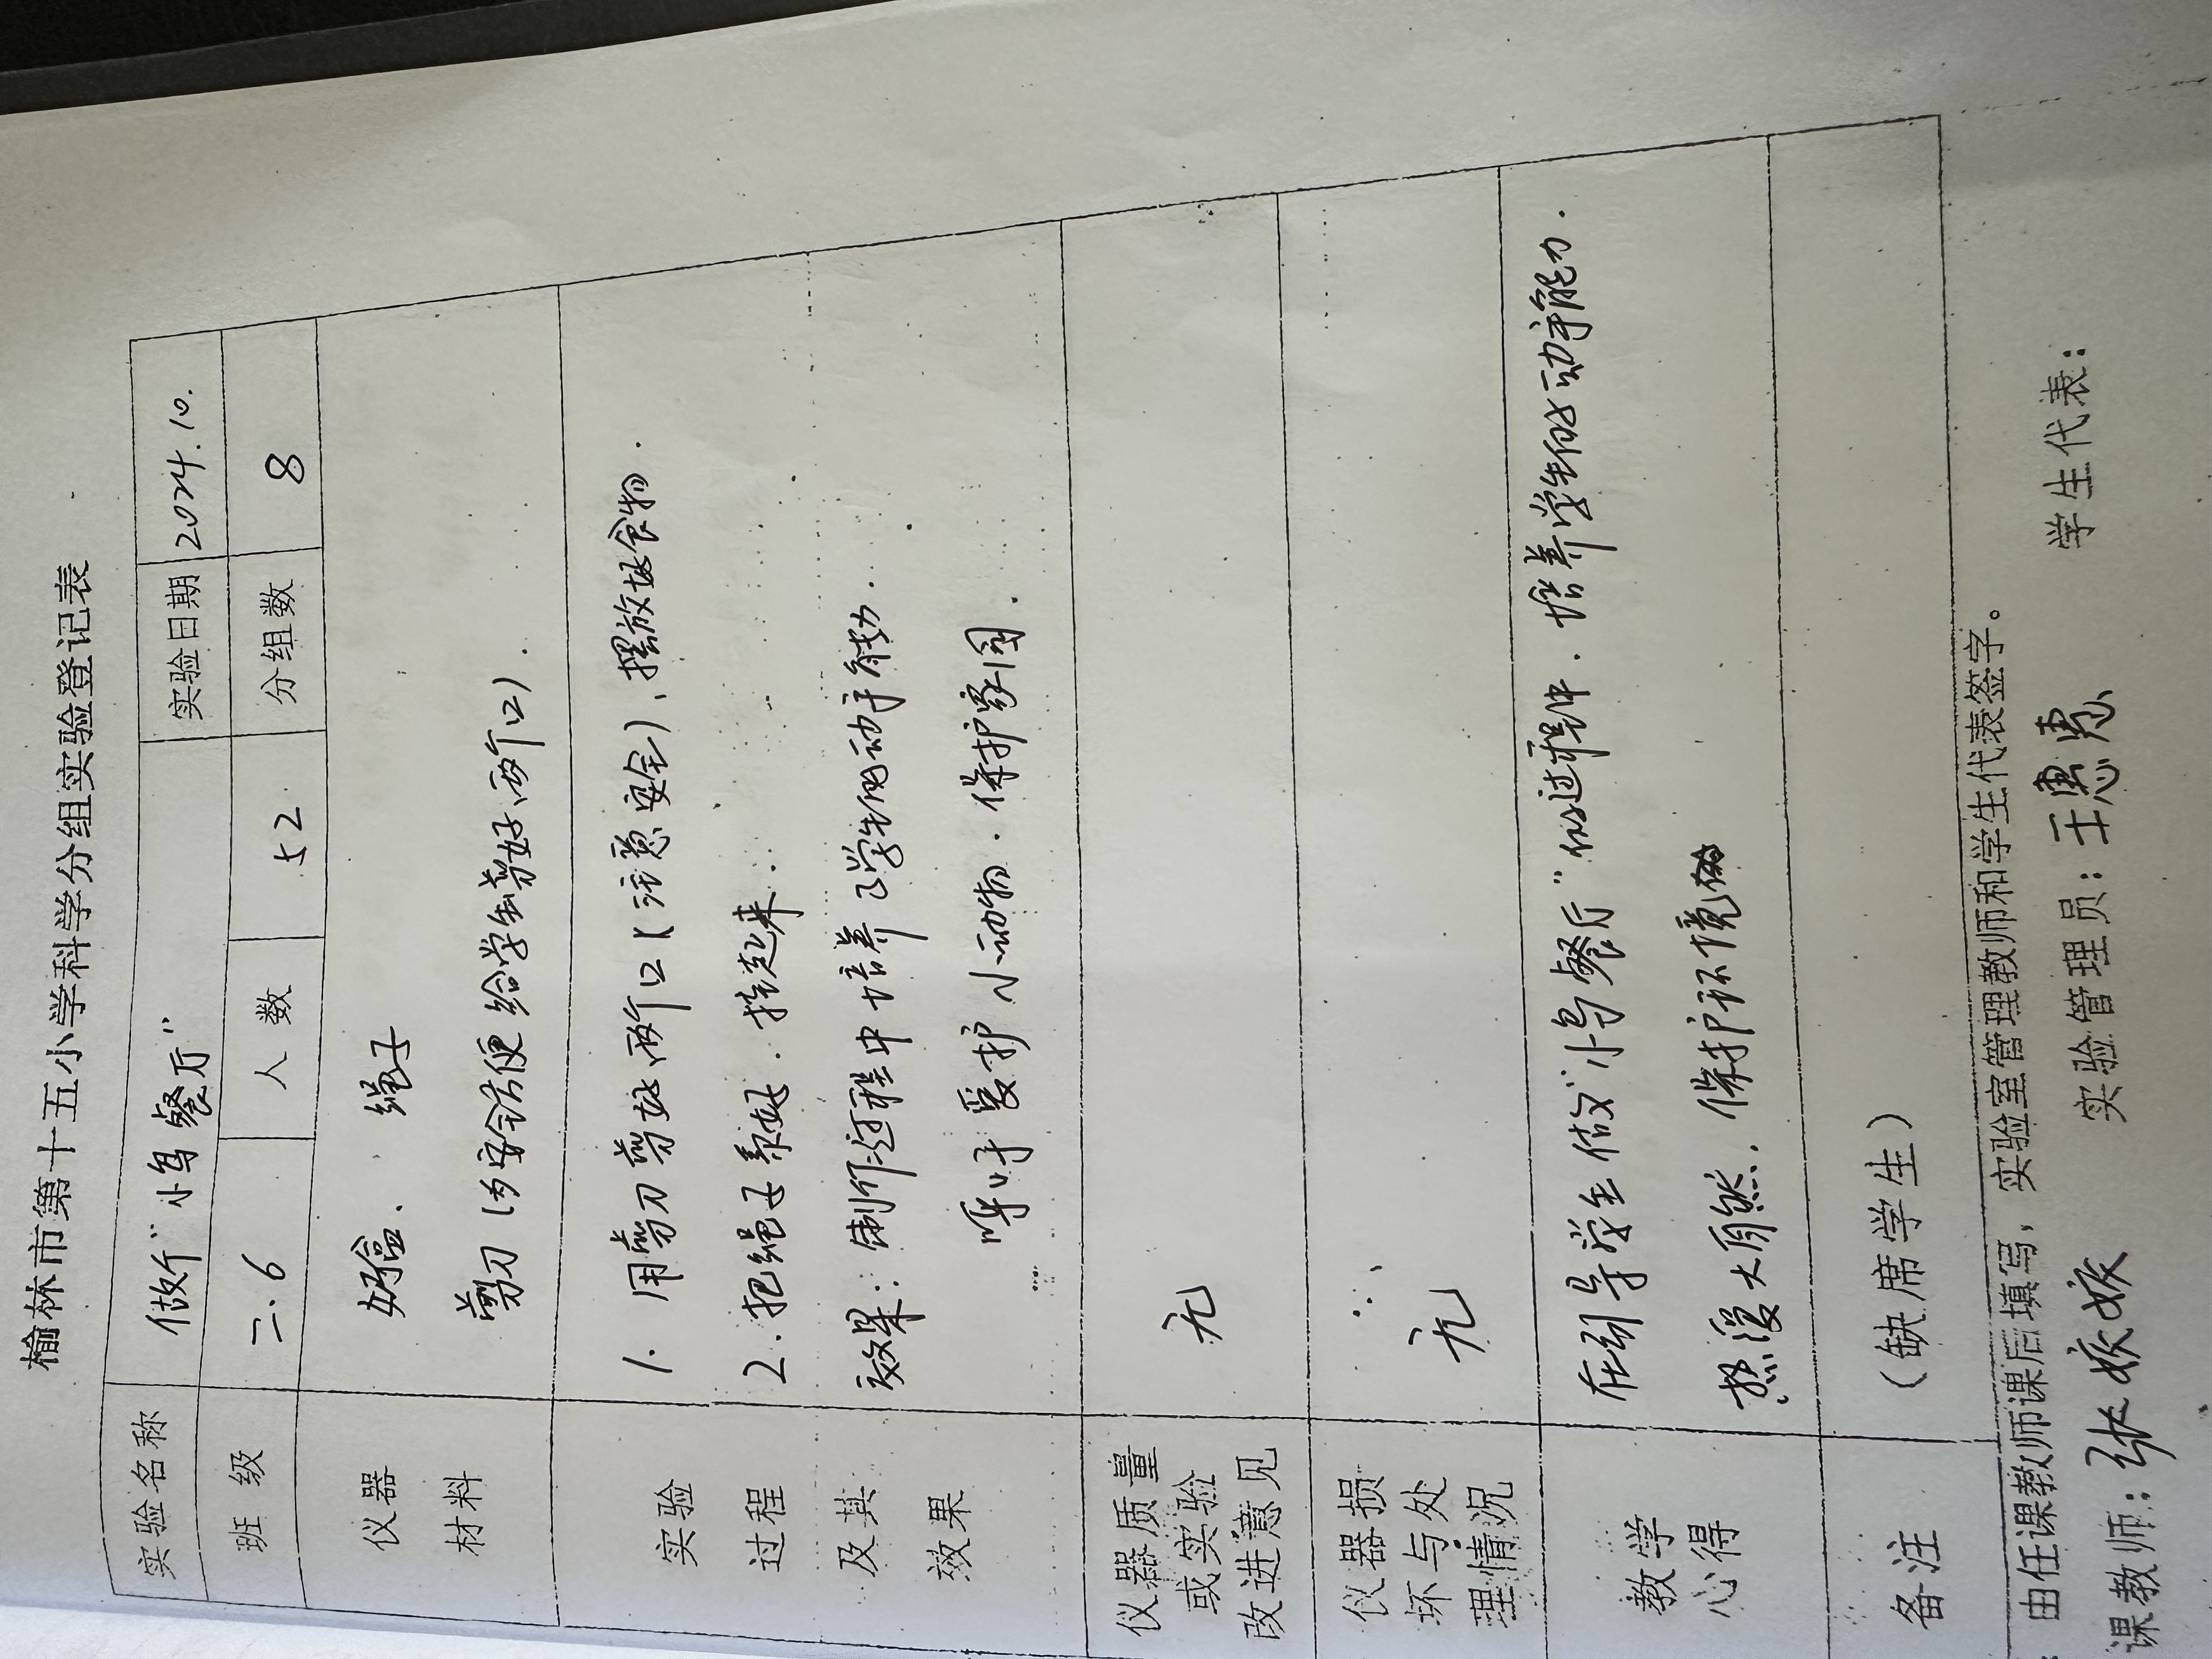 榆林市第十五小学科学分组实验登记表
实验名称 做个“小鸟餐厅” 实验日期 2024.10.
班级 二.6 人数 52 分组数 8
仪器 绳子
材料 剪刀(为安全方便给学生剪好两个口).
实验 1. 用剪刀剪好两个口(注意安全)、摆放好食物.
过程 2.把绳子系好.挂起来.
及其 效果:制作过程中培养了学生的动手能力.
效果 呼吁爱护小动物.保护家园.
仪器质量
或实验 无
改进意见
仪器损
坏与处 无
理情况
教学 在引导学生做“小鸟餐厅”的过程中.培养学生的动手能力.
心得 热爱大自然.保护环境
备注 (缺席学生)
:由任课教师课后填写,实验室管理教师和学生代表签字。
课教师: 实验管理员:王惠惠 学生代表: